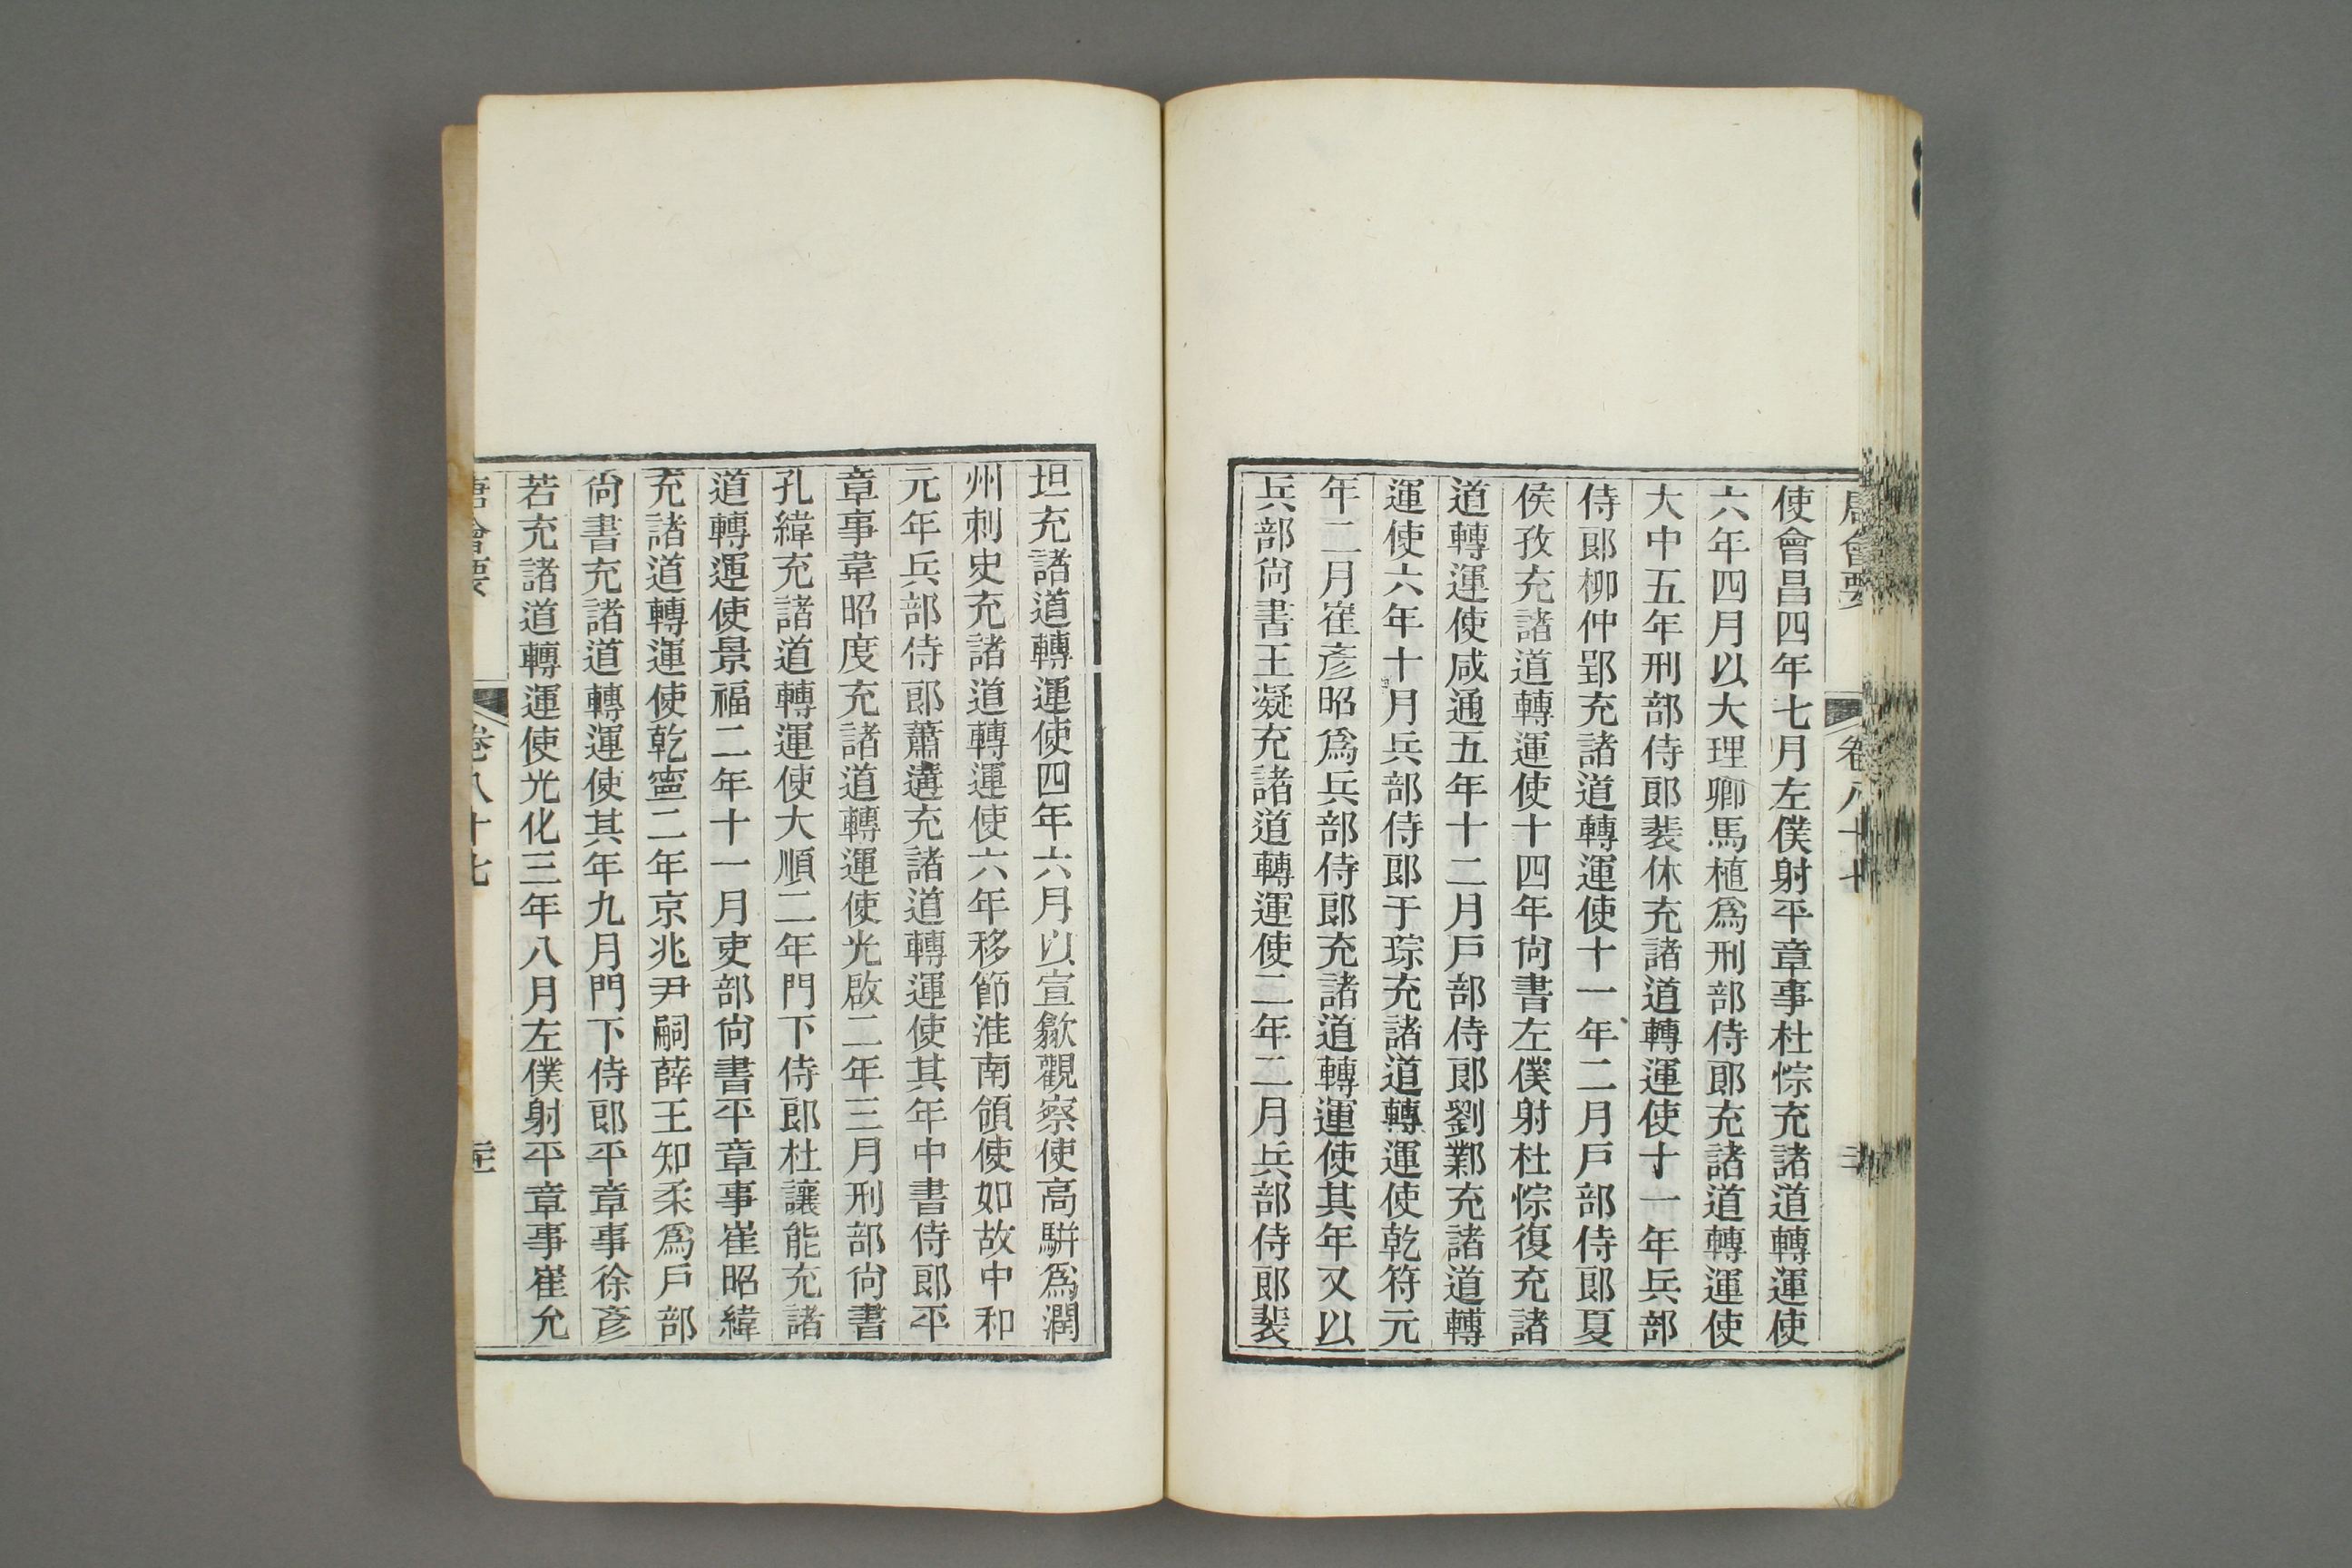 唐會要 卷八十七
使會昌四年七月左僕射平章事杜悰充諸道轉運使
六年四月以大理卿馬植爲刑部侍郎充諸道轉運使
大中五年刑部侍郎裴休充諸道轉運使十一年兵部
侍郎柳仲郢充諸道轉運使十一年二月戸部侍郎夏
侯孜充諸道轉運使十四年尙書左僕射杜悰復充諸
道轉運使咸通五年十二月戸部侍郎劉鄴充諸道轉
運使六年十月兵部侍郎于琮充諸道轉運使乾符元
年二月崔彥昭爲兵部侍郎充諸道轉運使其年又以
兵部尙書王凝充諸道轉運使二年二月兵部侍郎裴
坦充諸道轉運使四年六月以宣歙觀察使高騈爲潤
州刺史充諸道轉運使六年移節淮南領使如故中和
元年兵部侍郎蕭遘充諸道轉運使其年中書侍郎平
章事韋昭度充諸道轉運使光啟二年三月刑部尙書
孔緯充諸道轉運使大順二年門下侍郎杜讓能充諸
道轉運使景福二年十一月吏部尙書平章事崔昭緯
充諸道轉運使乾寧二年京兆尹嗣薛王知柔爲戸部
尙書充諸道轉運使其年九月門下侍郎平章事徐彥
若充諸道轉運使光化三年八月左僕射平章事崔允
唐會要 卷八十七